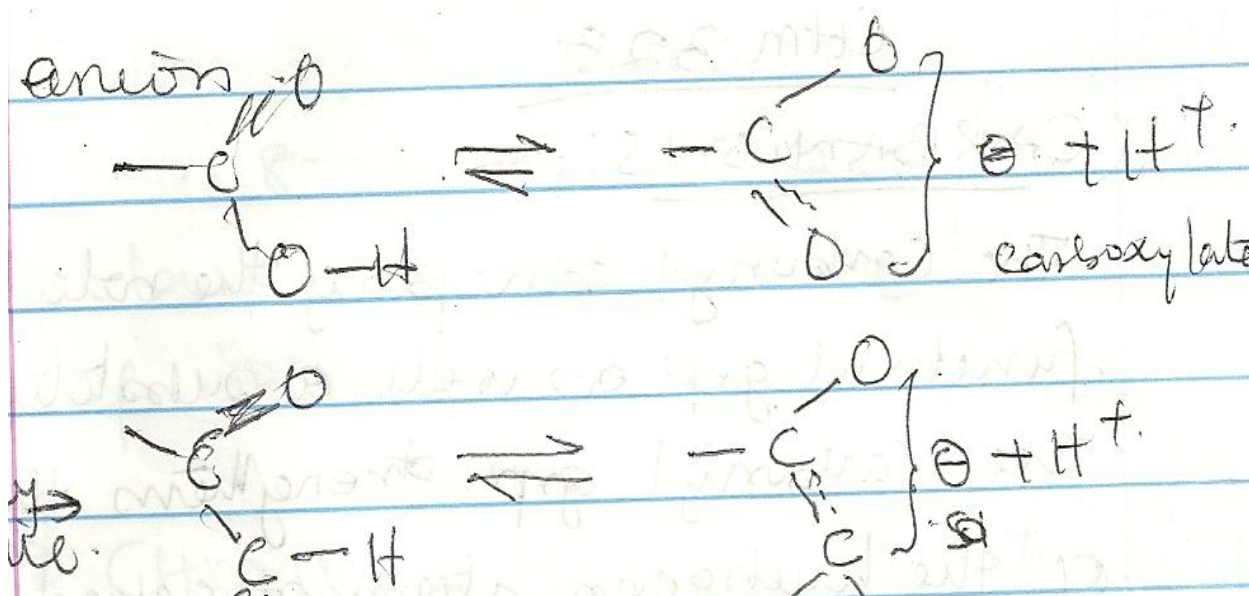 anion
O
— C
O — H
⇌
— C
O
O
} ⊖ + H⁺.
carboxylate
O
C
C — H
⇌
— C
O
C
} ⊖ + H⁺.